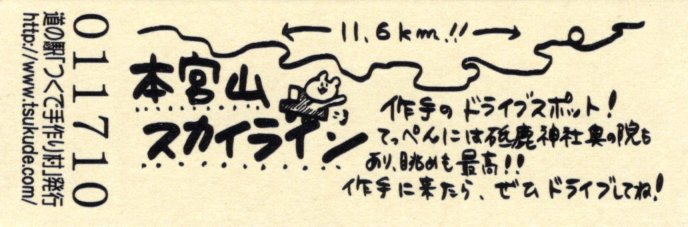 011710
道の駅「つくで手作り村」発行
http://www.tsukude.com/
← 11.6km!! →
本宮山
スカイライン
作手のドライブスポット!
てっぺんには砥鹿神社奥の院も
あり、眺めも最高!!
作手に来たら、ぜひドライブしてね!